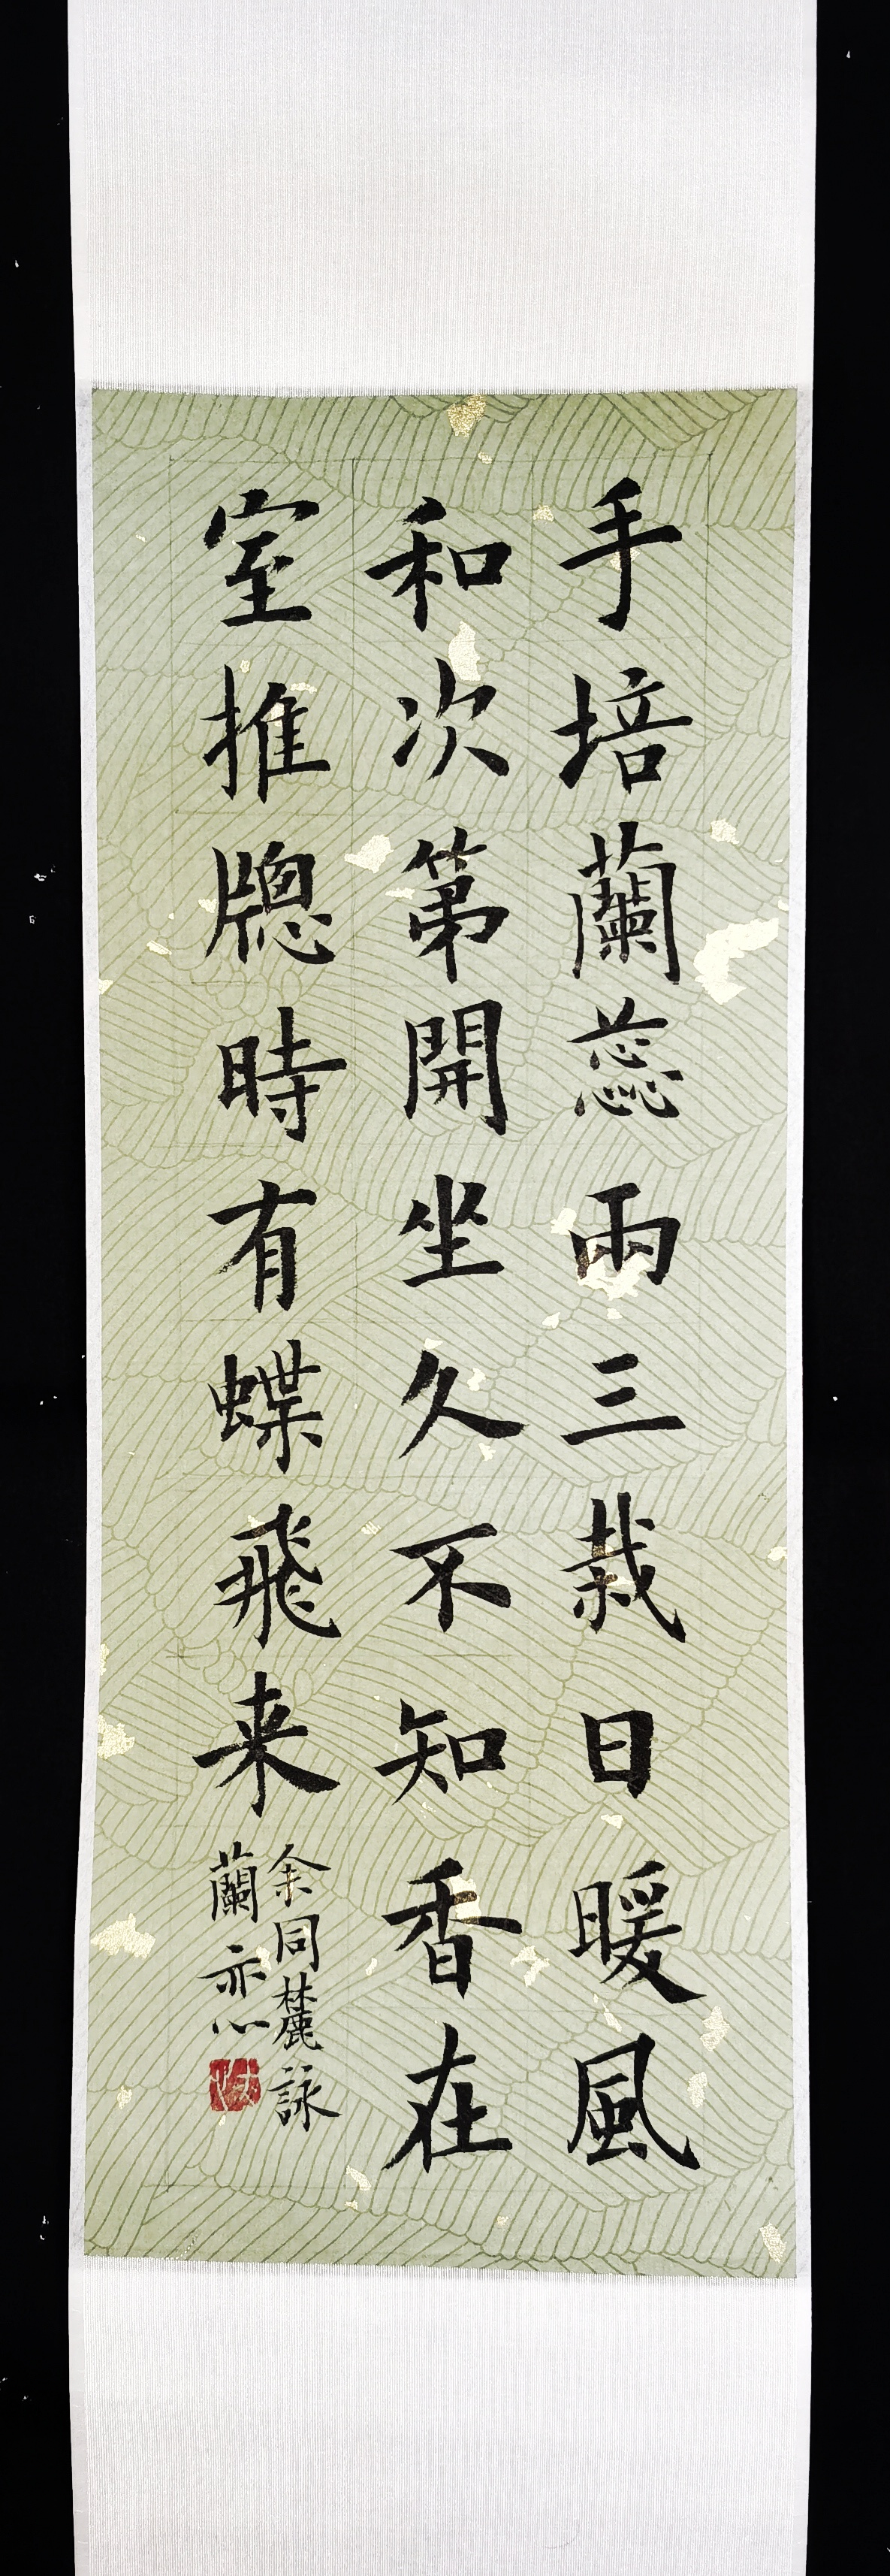 手培蘭蕊兩三栽日暖風
和次第開坐久不知香在
室推牕時有蝶飛来
余同麓詠
蘭亦心